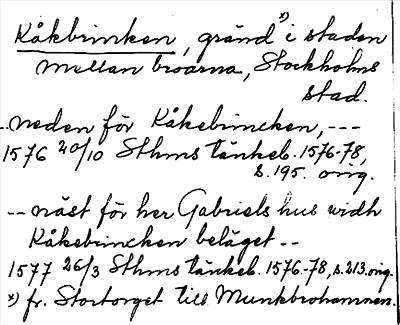 Kåkbrinken, gränd x) i staden
mellan broarna, Stockholms
stad.
-- neden för Kåkebrincken, ---
1576 20/10 Sthms tänkeb. 1576-78,
s. 195. orig.
-- näst för her Gabriels hus widh
Kåkebrincken beläget --
1577 26/3 Sthms tänkeb. 1576-78, s. 213. orig.
x) fr. Stortorget till Munkbrohamnen.